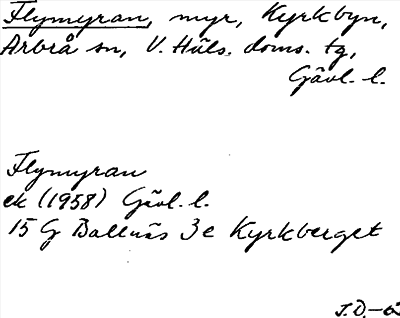 Flymyran, myr, Kyrkbyn,
Arbrå sn, V. Häls. doms. tg,
Gävl. l.
Flymyran
ek (1958) Gävl. l.
15 G Bollnäs 3 e Kyrkberget